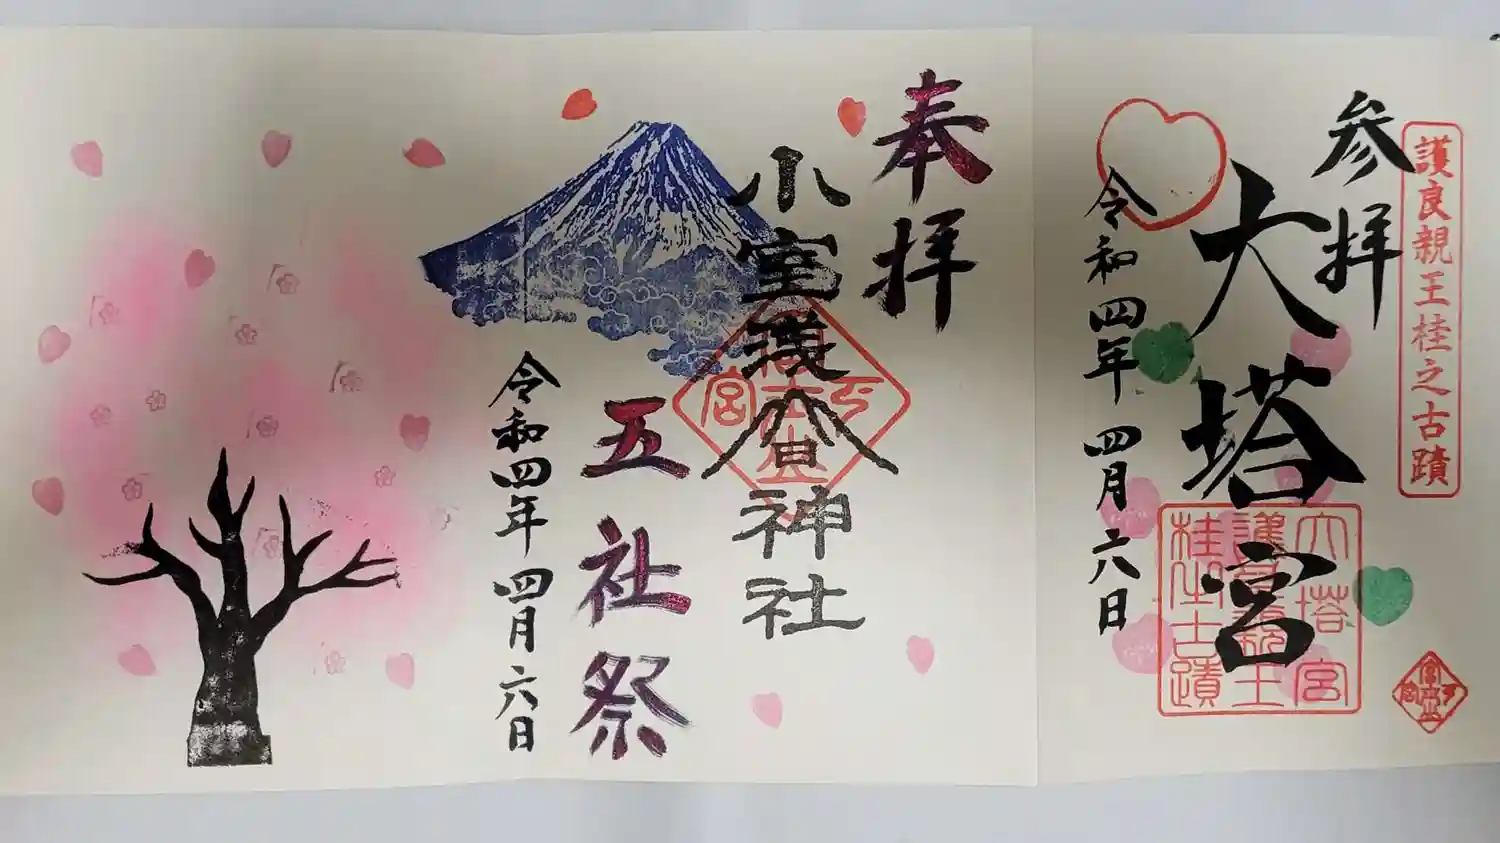 護良親王桂之古蹟
参拝
大塔宮
大塔宮
護良親王
桂之古蹟
令和四年 四月 六日
奉拝
小室浅間神社
五社祭
令和四年 四月 六日